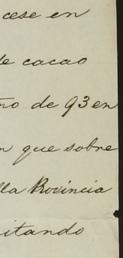 cese en
de cacao
no de 93 en
n que sobre
lla Provincia
itando